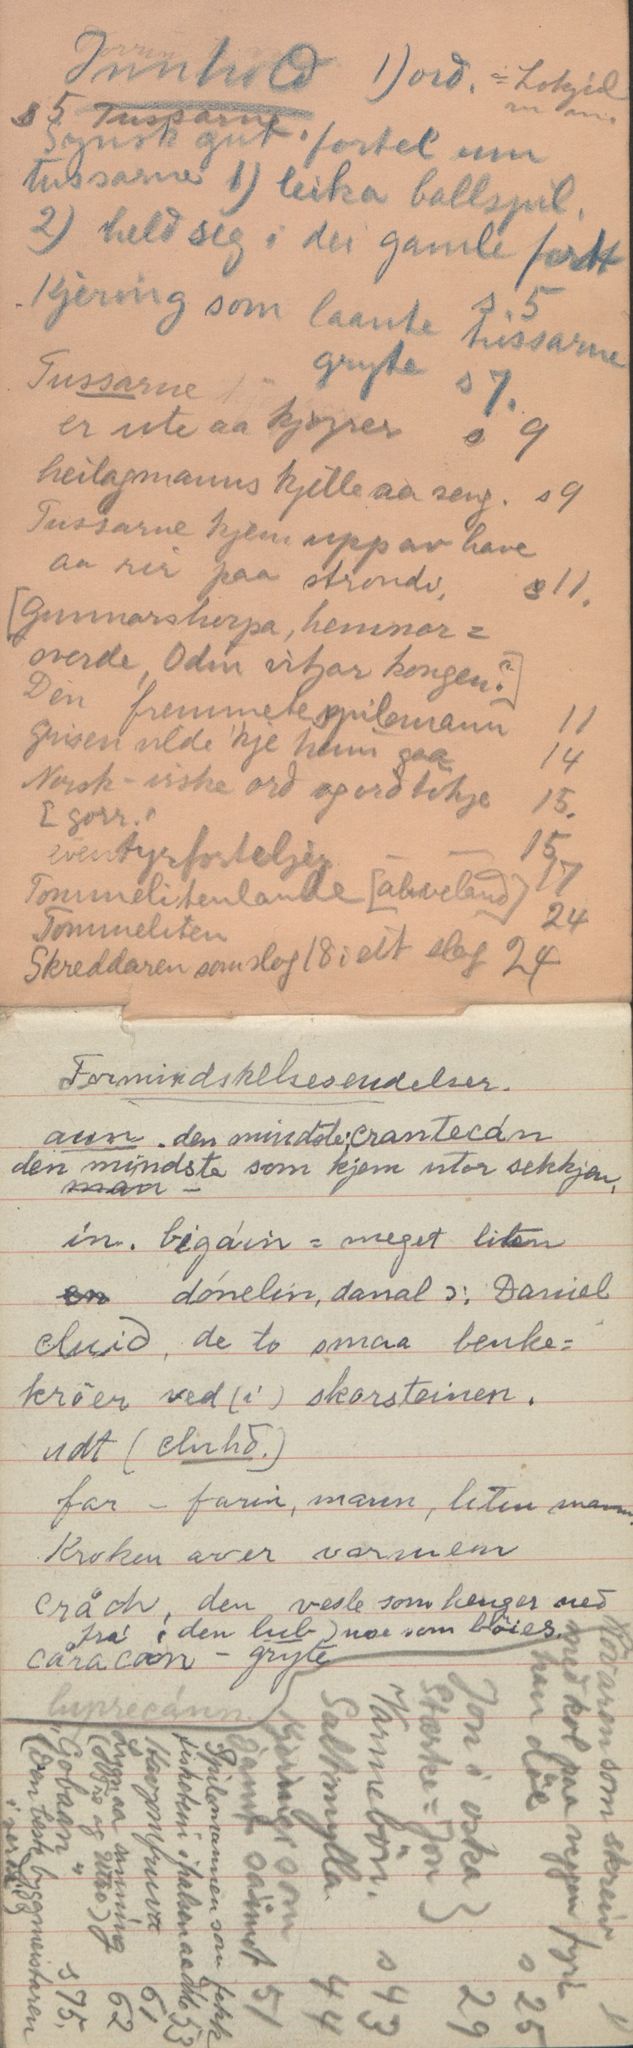 Innhold 1) orð. = Lokjið
s 5 Tussarne
Synsk gut. fortel um
tussarne 1) leika ballspil.
2) held seg i dei gamle fort
s 5
Kjering som laante tussarne
gryte s 7.
Tussarne
er ute aa kjøyrer s 9
heilagmanns kjelle aa seng. s 9
Tussarne kjem upp av have
aa rir paa strondi, s 11.
[Gunnarsherpa, hemnar=
sverde, Odin vitjar kongen?]
Den fremmete spilemann 11
Grisen vilde kje heim gaa 14
Norsk-irske ord og ordtökje 15.
[gorr.
eventyrforteljing — 15
Tommelitenlande [alveland] 17
Tommeliten 24
Skreddaren som slog 18 i eit slag 24
Formindskelsesendelser.
aun. den mindste; crantecán
den mindste som kjem utor sekkjen,
man -
ín. bigáin = meget liten
en dónelin, danal ɔ: Daniel
cluið, de to smaa benke=
kröer ved (i) skorsteinen.
udt (cluhð.)
far - farin, mann, liten mann.
Kroken over varmem
cråch, den vesle som henger ned
frá i den lub) noe som böies.
cáracoon - gryte
luprecánn
Röv aren som skreiv
med kol paa veggen fyri
han döe s 25
Jon i oska }
Sterke = Jon } 29
Varmebör. s 43
Saltmylla. 44
Kjeringi som
51
Spilemannen som fekk
fiskebeini i halsen aa dö 53
Havfruva 61
Lygnaa sanning 62
Gobaan " s 75.
(Den beste byggmeistaren
i verdi)